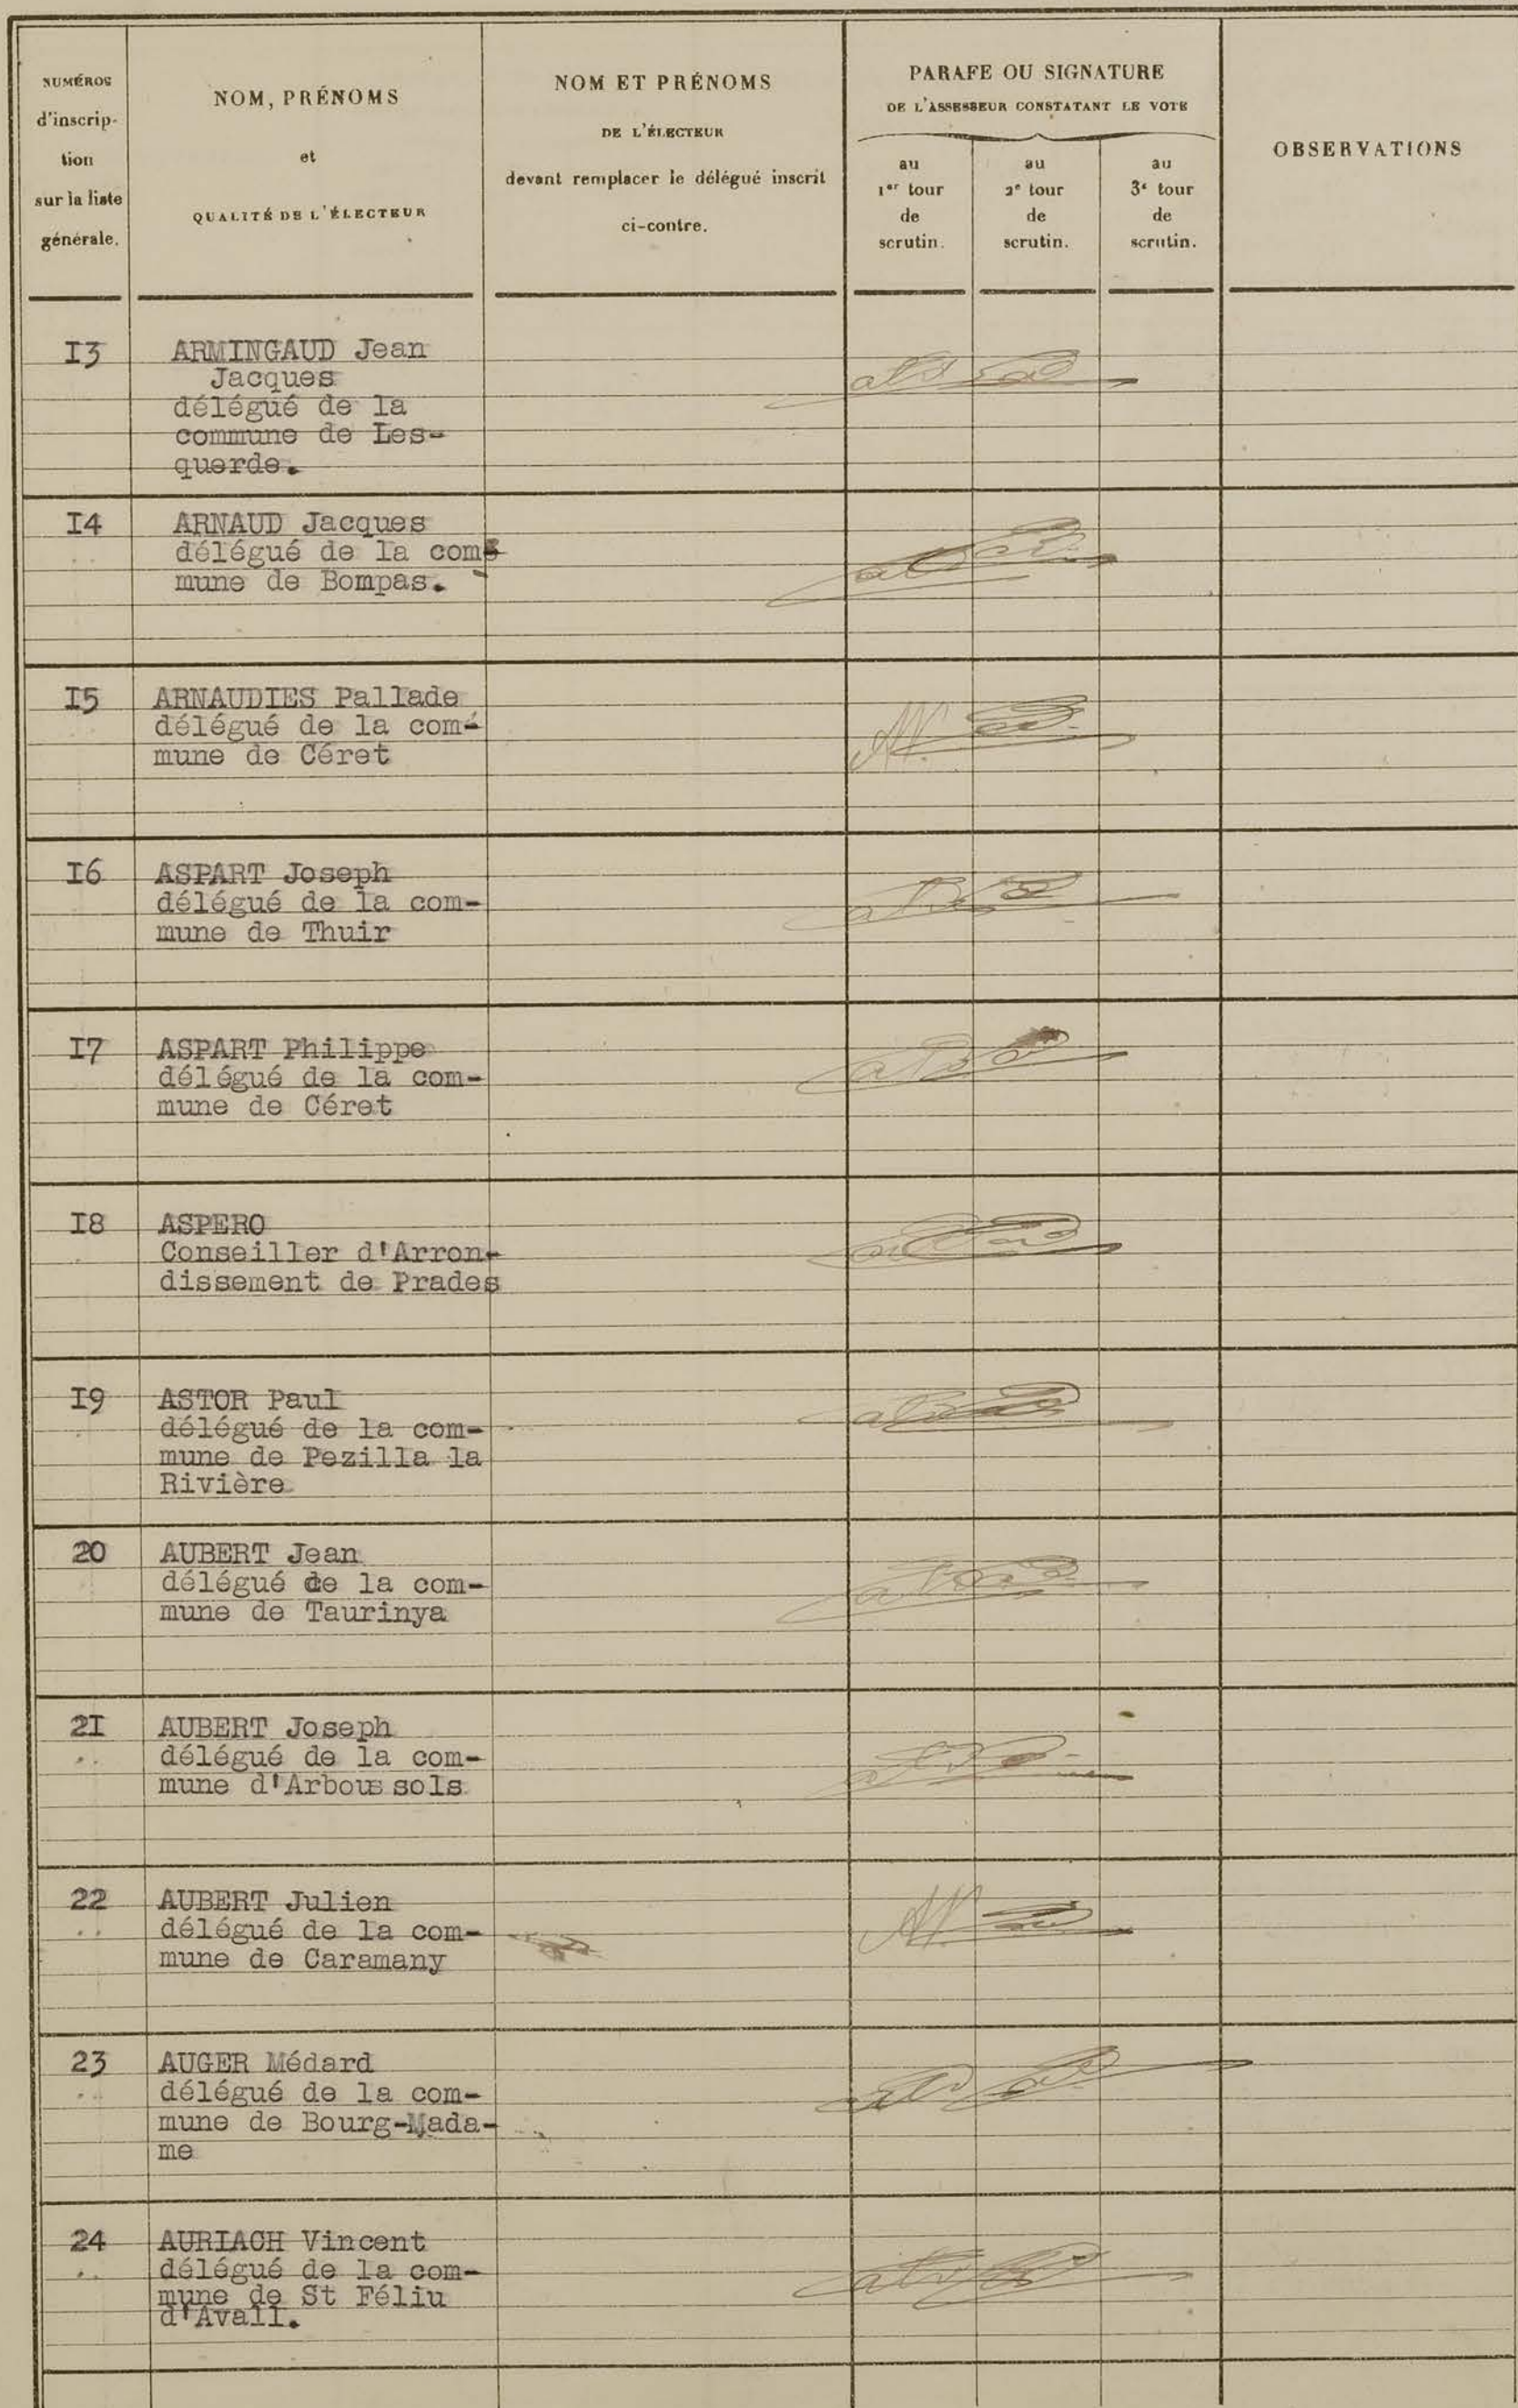 NUMÉROS
d'inscrip-
tion
sur la liste
générale.
NOM, PRÉNOMS
et
QUALITÉ DE L'ÉLECTEUR
NOM ET PRÉNOMS
DE L'ÉLECTEUR
devant remplacer le délégué inscrit
ci-contre.
PARAFE OU SIGNATURE
DE L'ASSESSEUR CONSTATANT LE VOTE
au
1er tour
de
scrutin.
au
2e tour
de
scrutin.
au
3e tour
de
scrutin.
OBSERVATIONS
I3 ARMINGAUD Jean
Jacques
délégué de la
commune de Les-
querde.
I4 ARNAUD Jacques
délégué de la com-
mune de Bompas.
I5 ARNAUDIES Pallade
délégué de la com-
mune de Céret
I6 ASPART Joseph
délégué de la com-
mune de Thuir
I7 ASPART Philippe
délégué de la com-
mune de Céret
I8 ASPERO
Conseiller d'Arron-
dissement de Prades
I9 ASTOR Paul
délégué de la com-
mune de Pezilla la
Rivière
20 AUBERT Jean
délégué de la com-
mune de Taurinya
2I AUBERT Joseph
délégué de la com-
mune d'Arboussols
22 AUBERT Julien
délégué de la com-
mune de Caramany
23 AUGER Médard
délégué de la com-
mune de Bourg-Mada-
me
24 AURIACH Vincent
délégué de la com-
mune de St Féliu
d'Avall.